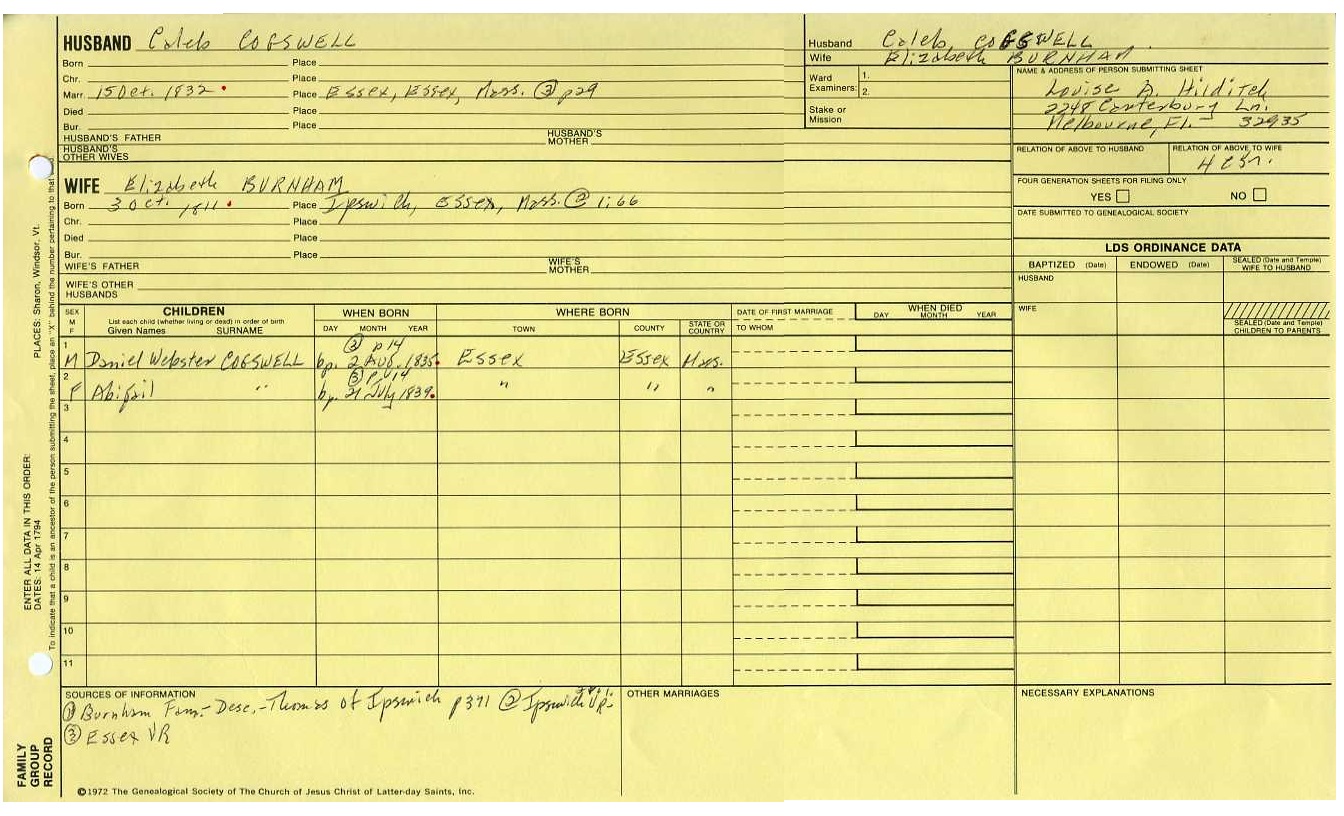 HUSBAND Caleb COGSWELL
Born Place
Chr. Place
Marr. 15 Oct. 1832 Place Essex, Essex, Mass. ③ p29
Died Place
Bur. Place
HUSBAND'S FATHER HUSBAND'S MOTHER
HUSBAND'S OTHER WIVES
Husband Caleb COGSWELL
Wife Elizabeth BURNHAM
Ward Examiners: 1. 2.
Stake or Mission
NAME & ADDRESS OF PERSON SUBMITTING SHEET
Louise A. Hilditch
2248 Canterbury Ln.
Melbourne, Fl. - 32935
RELATION OF ABOVE TO HUSBAND RELATION OF ABOVE TO WIFE
FOUR GENERATION SHEETS FOR FILING ONLY
YES NO
DATE SUBMITTED TO GENEALOGICAL SOCIETY
WIFE Elizabeth BURNHAM
Born 3 Oct. 1811 Place Ipswich, Essex, Mass. ② 1:66
Chr. Place
Died Place
Bur. Place
WIFE'S FATHER WIFE'S MOTHER
WIFE'S OTHER HUSBANDS
LDS ORDINANCE DATA
BAPTIZED (Date) ENDOWED (Date) SEALED (Date and Temple) WIFE TO HUSBAND
HUSBAND
WIFE
SEALED (Date and Temple) CHILDREN TO PARENTS
SEX M F CHILDREN WHEN BORN WHERE BORN DATE OF FIRST MARRIAGE WHEN DIED
List each child (whether living or dead) in order of birth
Given Names SURNAME DAY MONTH YEAR TOWN COUNTY STATE OR COUNTRY TO WHOM DAY MONTH YEAR
1 ③ p14
M Daniel Webster COGSWELL bp. 2 Aug. 1835 Essex Essex Mass.
2 ③ p. 14
F Abigail " bp. 21 July 1839 " " "
3
4
5
6
7
8
9
10
11
SOURCES OF INFORMATION OTHER MARRIAGES NECESSARY EXPLANATIONS
① Burnham Fam.- Desc.-Thomas of Ipswich p371 ② Ipswich V.R.
③ Essex VR
©1972 The Genealogical Society of The Church of Jesus Christ of Latter-day Saints, Inc.
FAMILY GROUP RECORD
ENTER ALL DATA IN THIS ORDER:
DATES: 14 Apr 1794 PLACES: Sharon, Windsor, Vt.
To indicate that a child is an ancestor of the person submitting the sheet, place an "X" behind the number pertaining to that